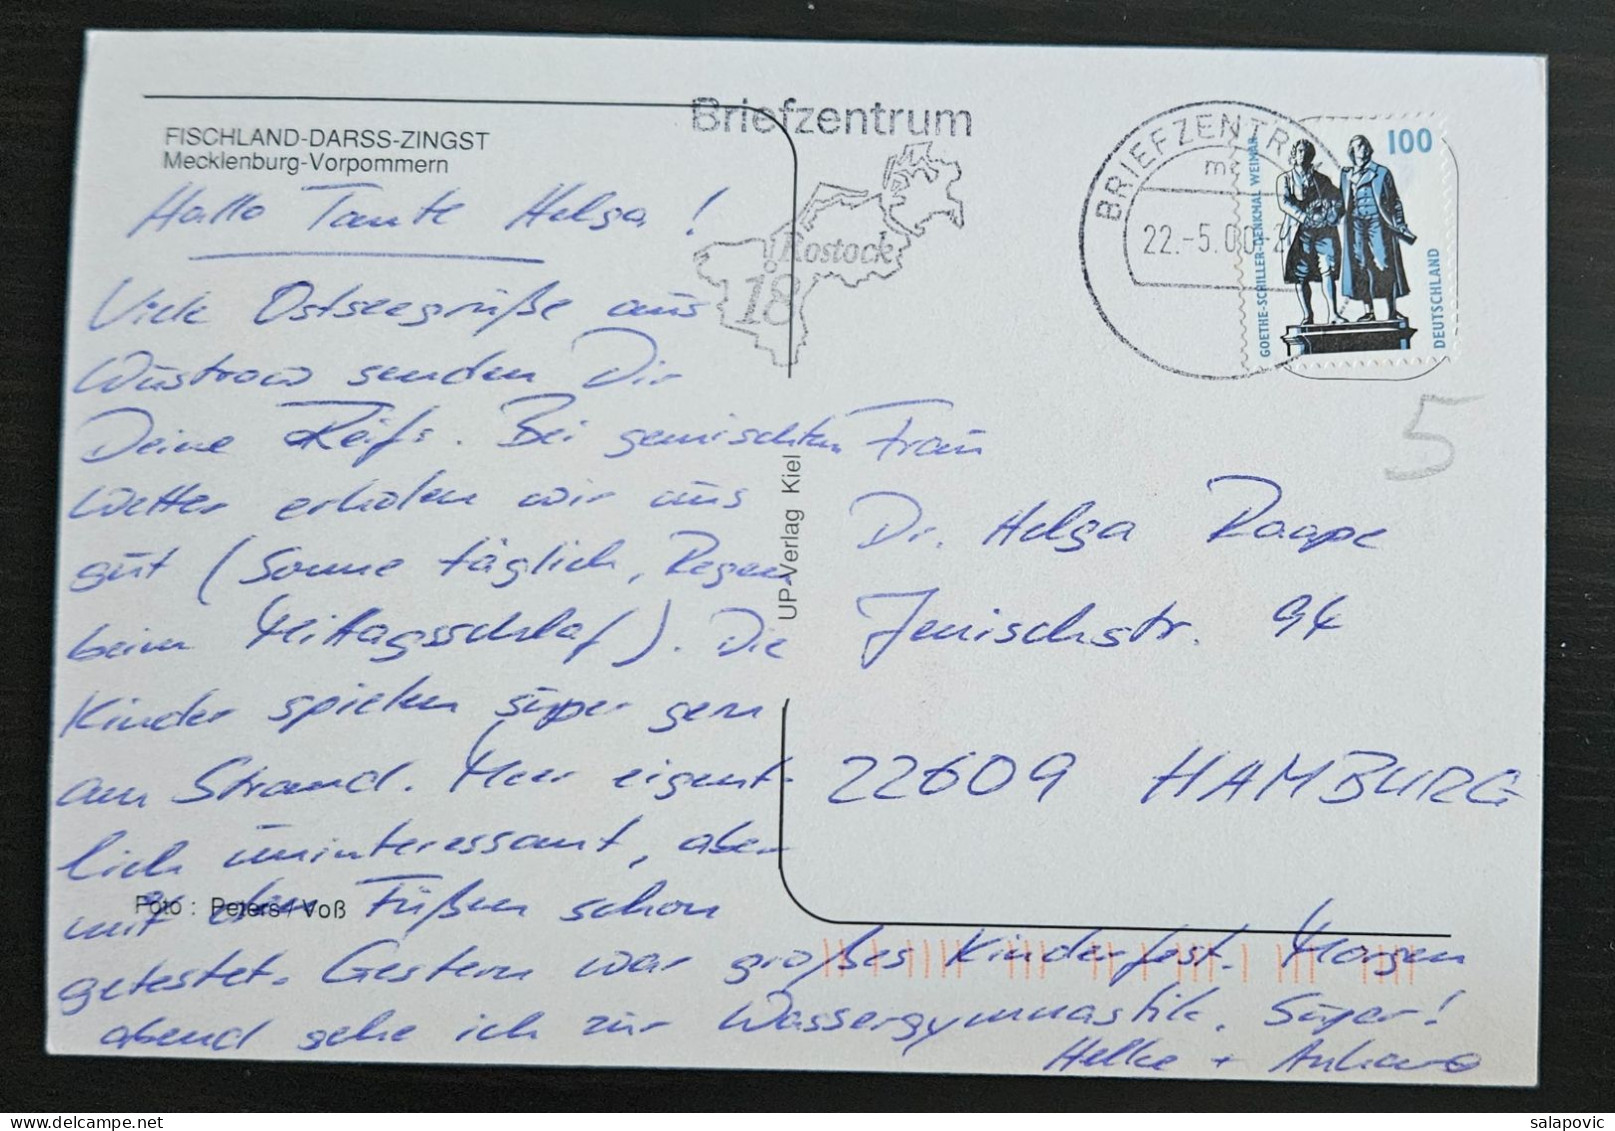 FISCHLAND-DARSS-ZINGST
Mecklenburg-Vorpommern
Hallo Tante Helga!
Viele Ostseegrüße aus
Wustrow senden Dir
Deine Reifs. Bei gemischtem
Wetter erholen wir uns
gut (Sonne täglich, Regen
beim Mittagsschlaf). Die
Kinder spielen super gern
am Strand. Meer eigent-
lich uninteressant, aber
mit den Füßen schon
getestet. Gestern war großes Kinderfest. Morgen
abend gehe ich zur Wassergymnastik. Super!
Foto: Peters/Voß
UP-Verlag Kiel
Briefzentrum
Rostock
18
BRIEFZENTRUM
22.-5.00-2
100
GOETHE-SCHILLER-DENKMAL WEIMAR
DEUTSCHLAND
5
Frau
Dr. Helga Raape
Jenischstr. 94
22609 HAMBURG
salapovic